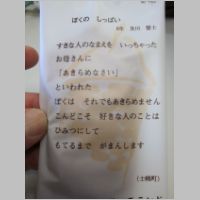 ぼくの しっぱい
すきな人のなまえを いっちゃった
お母さんに
「あきらめなさい」
といわれた
ぼくは それでもあきらめません
こんどこそ 好きな人のことは
ひみつにして
もてるまで がまんします
(士幌町)